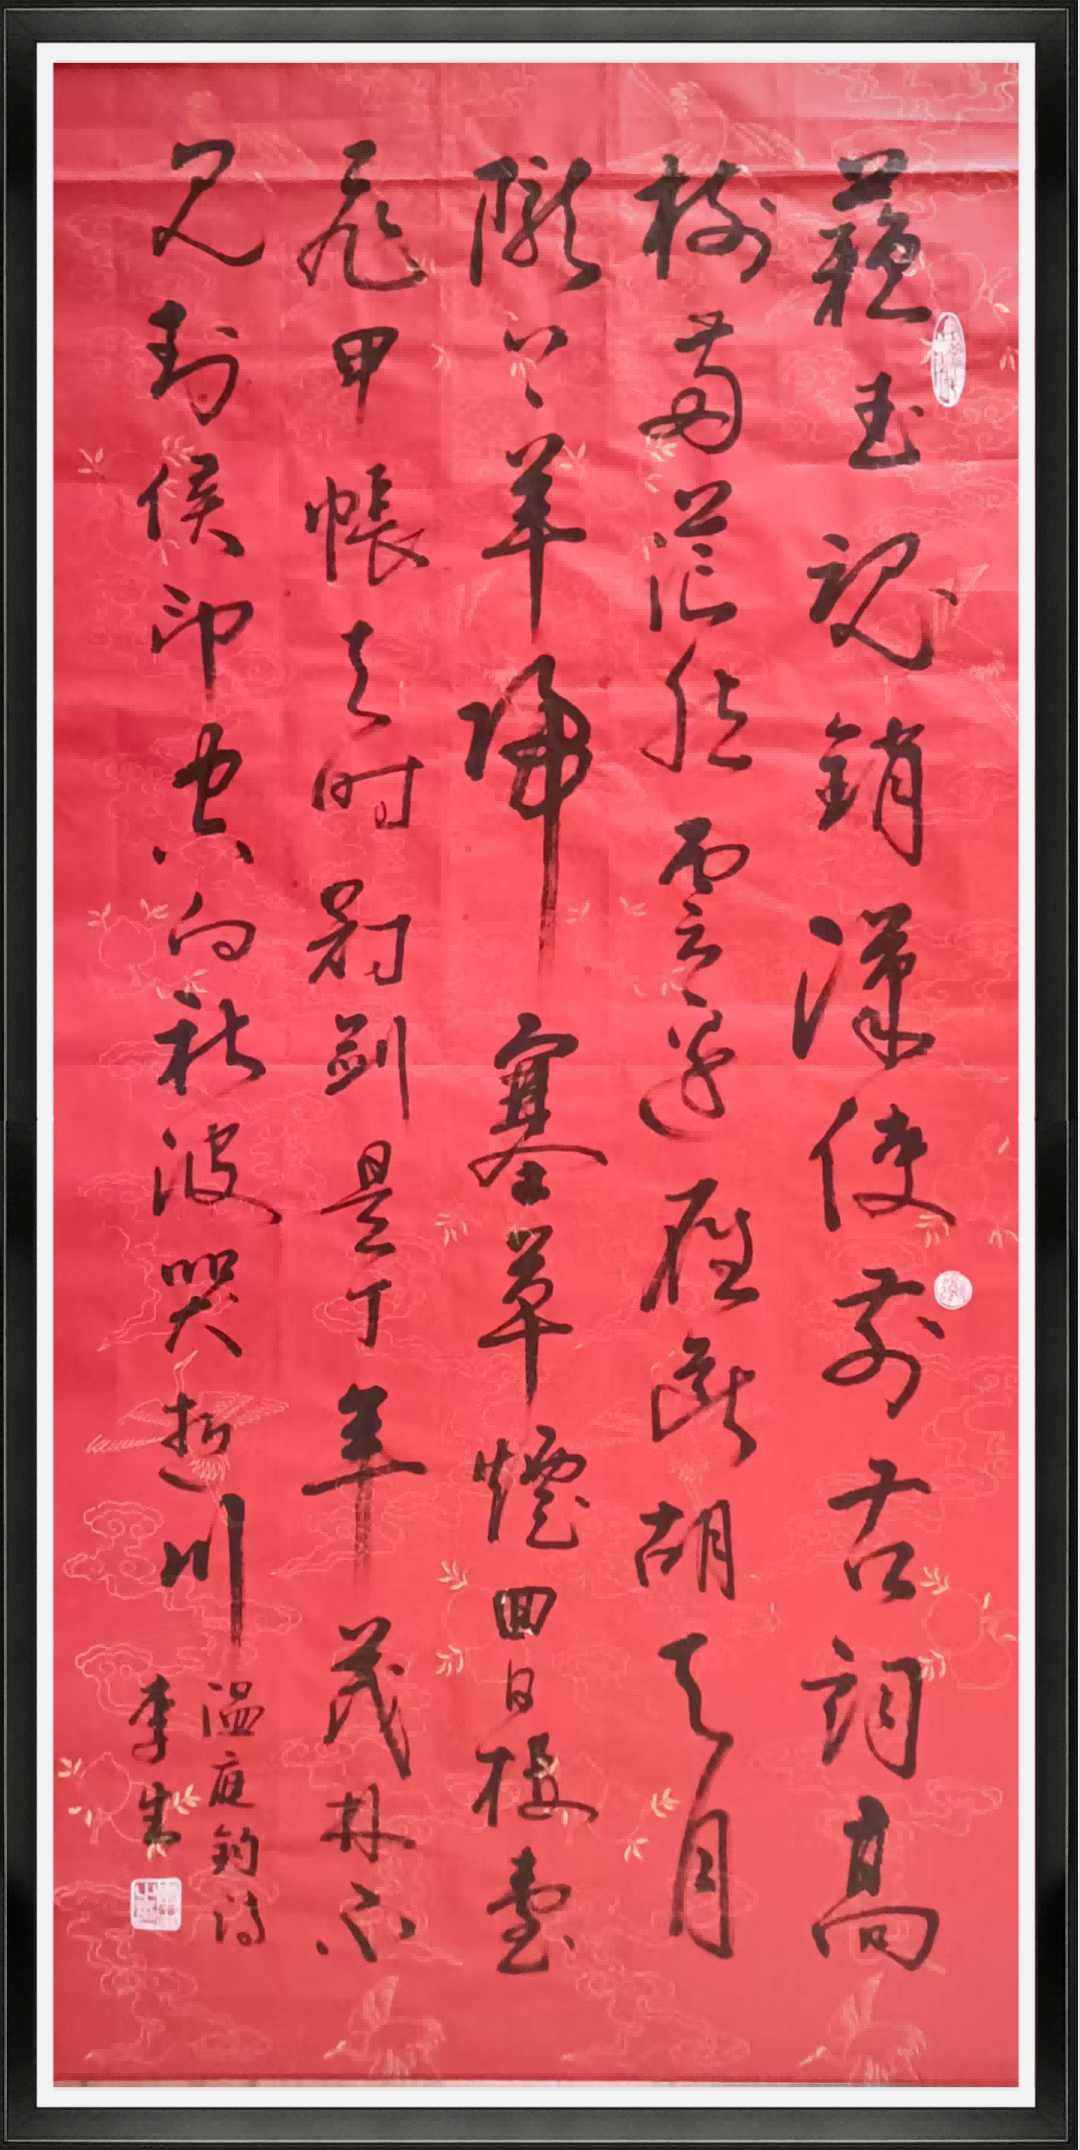 蘇武魂銷漢使前古祠高
樹兩茫然雲邊雁斷胡天月
隴上羊歸塞草煙回日樓臺
飛甲帳去時冠劍是丁年茂林不
見封侯印空向秋波哭逝川
温庭鈞詩
李生